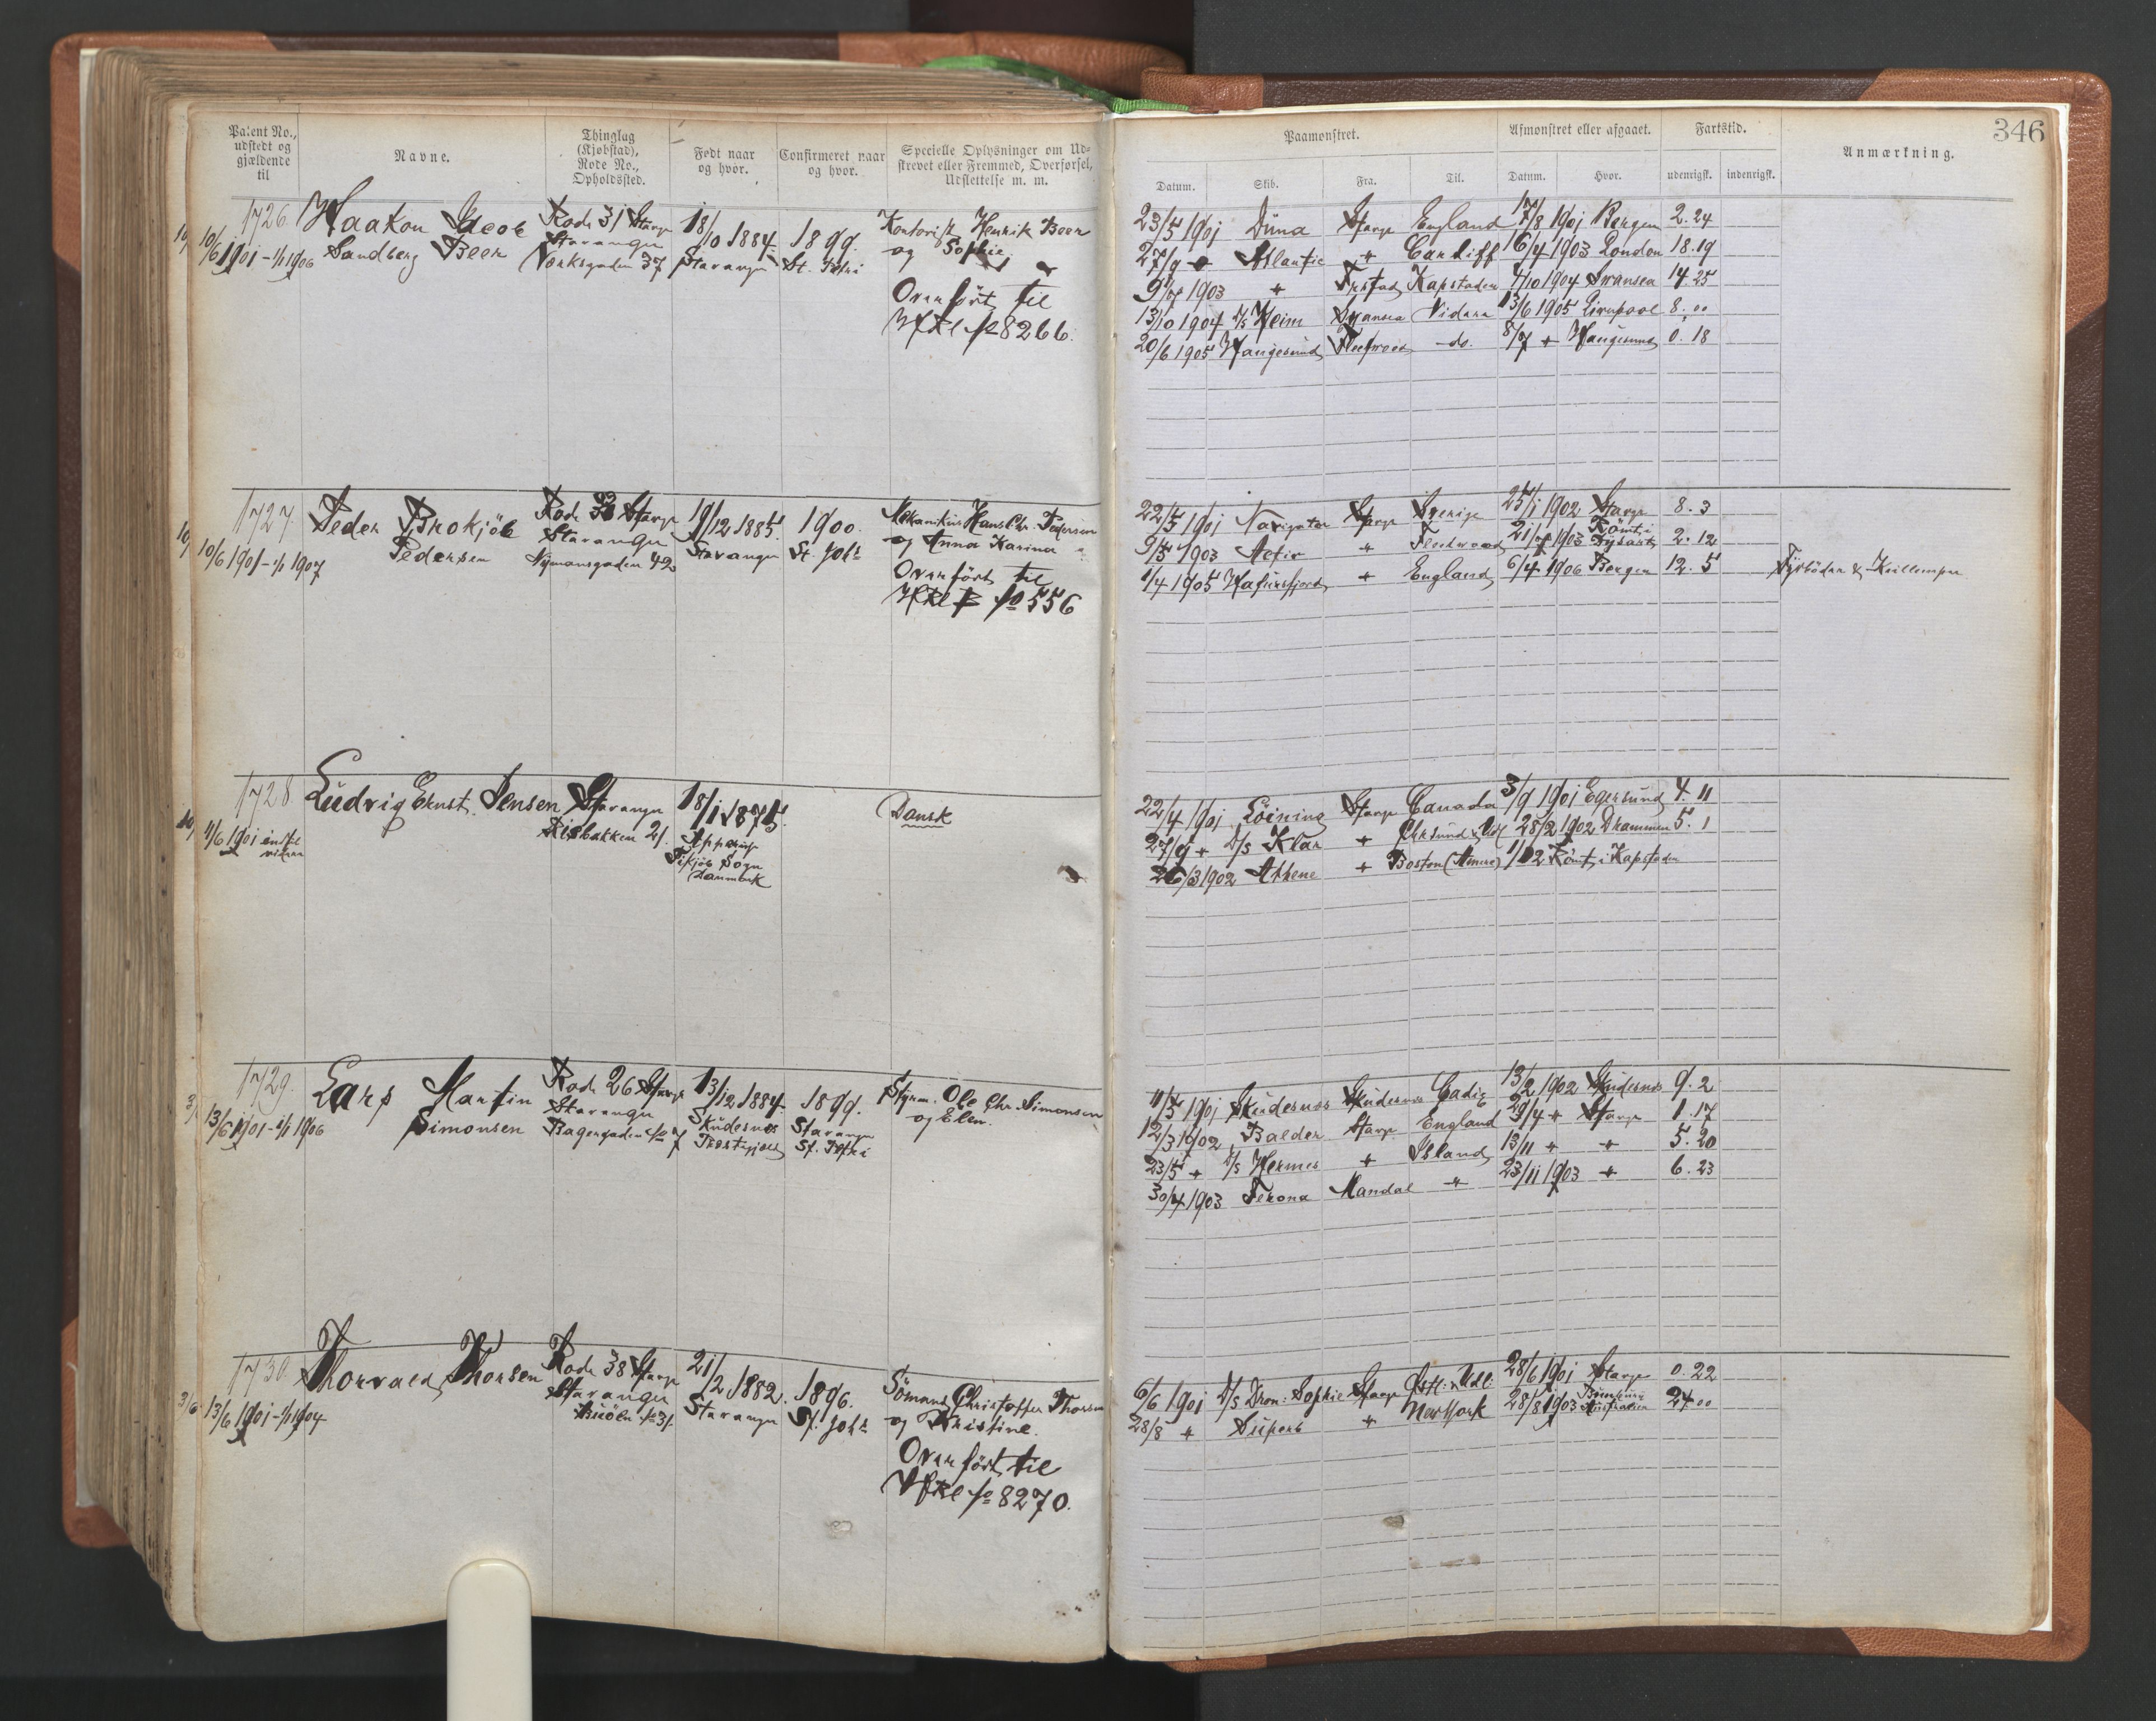 Patent No., udstedt og gjældende til
Navne.
Thinglag (Kjøbstad), Rode No., Opholdssted.
Født naar og hvor.
Confirmeret naar og hvor.
Specielle Oplysninger om Udskrevet eller Fremmed, Overførsel, Udslettelse m. m.
Paamønstret.
Datum.
Skib.
Fra.
Til.
Afmønstret eller afgaaet.
Datum.
Hvor.
Fartstid.
udenrigsk.
indenrigsk.
Anmærkning.
346
1726
10/6 1901 - 1/1 1906
Haakon Jacob
Sandberg Beer
Rode 31 Stavgr
Stavanger
Nørksgaden 37
18/10 1884
Stavanger
1899.
St. Petri
Kontorist Henrik Beer
og Sophie
Overført til
Hfkl fo 8266.
23/5 1901 Düna Stavgr England 17/8 1901 Bergen 2. 24
27/9 " Atlantic " Cardiff 16/4 1903 London 18. 19
1903 " Kapstaden 7/10 1904 Svansea 14. 25
13/10 1904 D/s Heim Svansea Videre 13/6 1905 Liverpool 8. 00
20/6 1905 Haugesund Fleetwood do. 8/7 " Haugesund 0. 18
1727.
10/6 1901 - 1/1 1907
Peder Brokjöb
Pedersen
Rode Stavgr
Stavanger
Nymansgaden 42
19/12 1885.
Stavanger
1900.
St. Johs
Mekanikus Hans Chr. Pedersen
og Anna Karina
Overført til
Hfkl B fo 556
22/5 1901 Navigator Stavgr Sverige 25/1 1902 Stavgr 8. 3
9/5 1903 Activ " Fleetwood 1903 Römt i 2. 12
1/4 1905 Hafursfjord " England 6/4 1906 Bergen 12. 5
Fyrböder & Kullemper
1728
11/6 1901 indtil
videre
Ludvig Ernst Jensen
Stavanger
Risbakken 21.
18/1 1875.
Apperup
Tikjøb Sogn
Danmark
Dansk
22/4 1901 Löining Stavgr Canada 3/9 1901 Egersund 4. 11
27/9 " D/s Klar " Chrsund & Udl 28/2 1902 Drammen 5. 1
26/3 1902 Athene " Boston (Amerc) 02 Römt i Kapstaden
1729.
13/6 1901 - 1/1 1906
Lars Martin
Simonsen
Rode 26 Stavgr
Stavanger
Bagergaden No 7
13/12 1884
Skudesnes
1899.
Stavanger
St. Petri
Styrm. Ole Chr. Simonsen
og Elen.
11/5 1901 Skudesnes Skudesnes Cadiz 13/2 1902 Skudesnes 9. 2
12/3 1902 Balder Stavgr England 29/4 " Stavgr 1. 17
23/5 " D/s Hermes " Island 13/11 " " 5. 20
30/4 1903 Verona Mandal " 23/11 1903 " 6. 23
1730.
13/6 1901 - 1/1 1904
Thorvald Thorsen
Rode 38 Stavgr
Stavanger
Buöln No 31
21/2 1882.
Stavanger
1896.
St. Johs
Sömand Christoffer Thorsen
og Kristine.
Overført til
Hfkl fo 8270.
6/6 1901 D/s Dron: Sophie Stavgr Östl: & Udl: 28/6 1901 Stavgr 0. 22
28/8 " Superb " NewYork 28/8 1903 Bunbury Australien 24 00